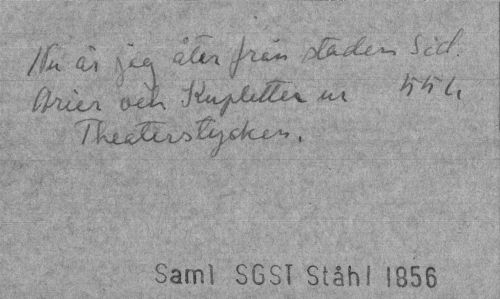 Nu är jag åter från staden Sid.
Arier och Kupletter ur 554
Theaterstycken.
Saml SGST Ståhl 1856